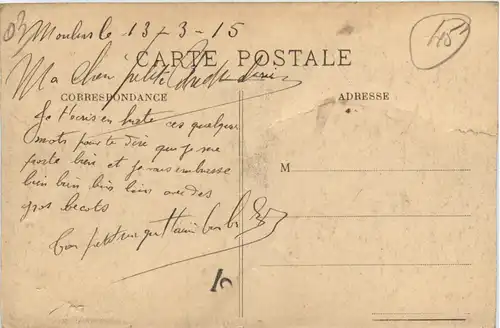 03
Moulins le 13-3-15
45
CARTE POSTALE
Ma Chère petite
CORRESPONDANCE
ADRESSE
Je t'écris en hate ces quelques
mots pour te dire que je me
porte bien et je vous embrasse
M
bien bien bien bien
gros becots
Ton petit qui t'aime